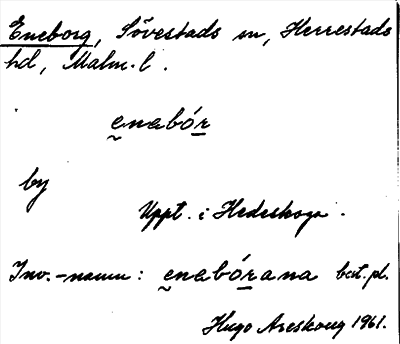 Eneborg, Sövestads sn, Herrestads
hd, Malm. l.
enabór
by
Uppt. i Hedeskoga.
Inv.-namn: enabórana bst. pl.
Hugo Areskoug 1961.